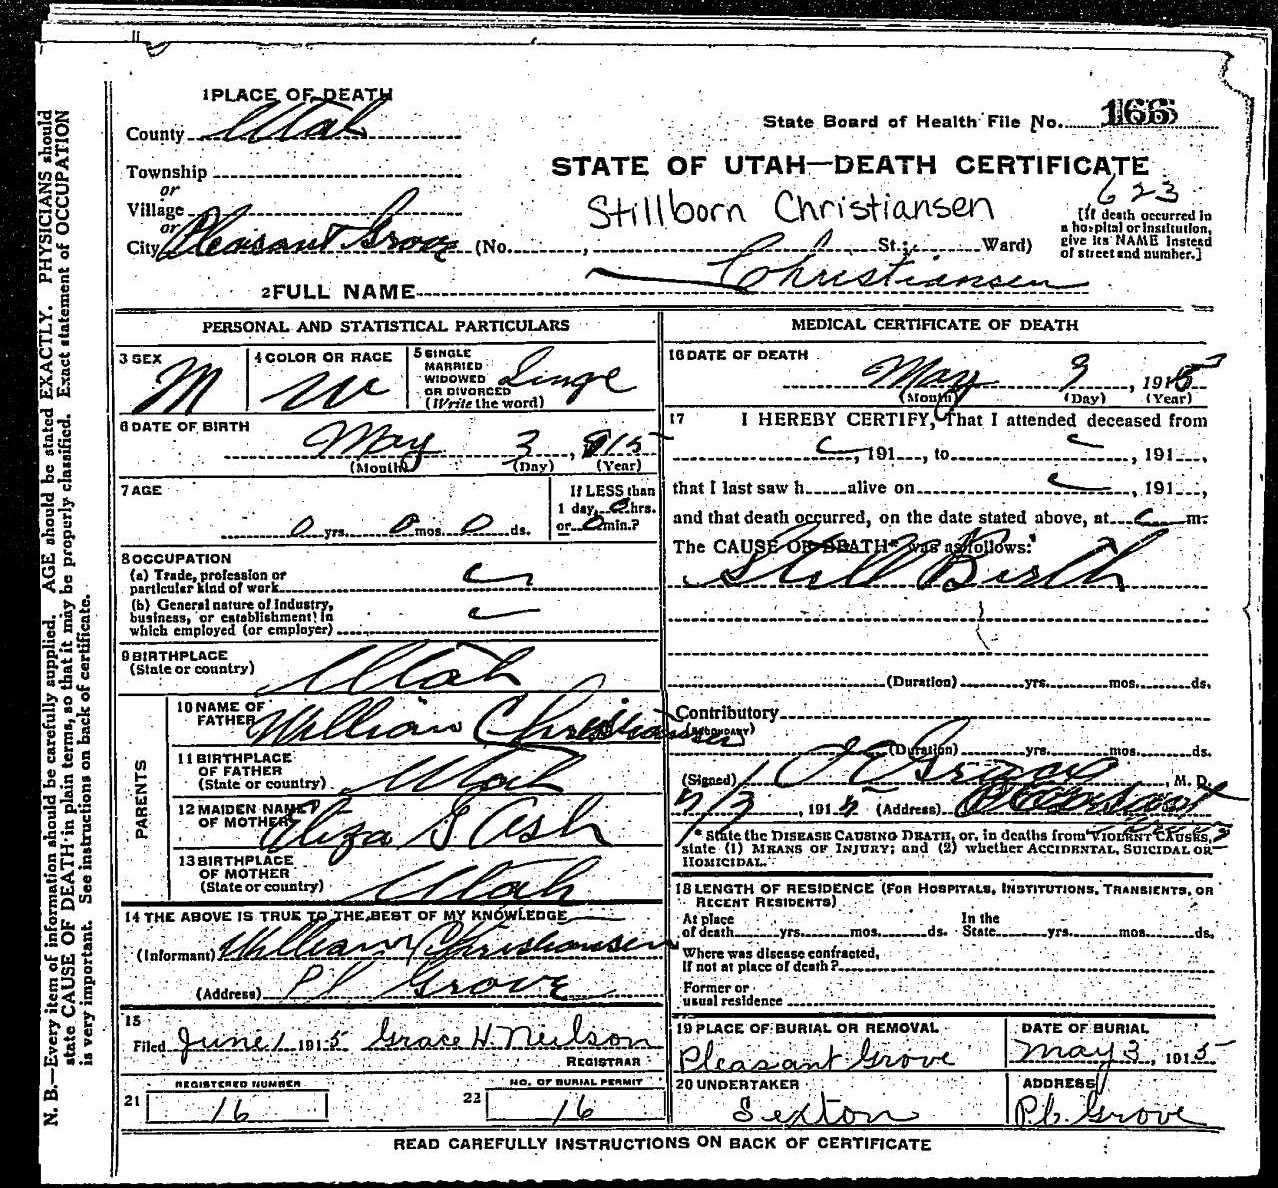 1 PLACE OF DEATH
County Utah
State Board of Health File No. 166
STATE OF UTAH—DEATH CERTIFICATE
Township
or
Village
or
City Pleasant Grove (No. , St.; Ward)
623
Stillborn Christiansen
[If death occurred in
a hospital or institution,
give its NAME instead
of street and number.]
2 FULL NAME Christiansen
PERSONAL AND STATISTICAL PARTICULARS
3 SEX M
4 COLOR OR RACE W
5 SINGLE
MARRIED
WIDOWED
OR DIVORCED
(Write the word)
Singe
6 DATE OF BIRTH
May 3, 915
(Month) (Day) (Year)
7 AGE
0 yrs. 0 mos. 0 ds.
If LESS than
1 day, 0 hrs.
or 0 min.?
8 OCCUPATION
(a) Trade, profession or
particular kind of work
(b) General nature of Industry,
business, or establishment in
which employed (or employer)
9 BIRTHPLACE
(State or country) Utah
PARENTS
10 NAME OF
FATHER William Christiansen
11 BIRTHPLACE
OF FATHER
(State or country) Utah
12 MAIDEN NAME
OF MOTHER Eliza G Ash
13 BIRTHPLACE
OF MOTHER
(State or country) Utah
14 THE ABOVE IS TRUE TO THE BEST OF MY KNOWLEDGE
(Informant) William Christiansen
(Address) Pl Grove
15
Filed June 1 1915 Grace H. Neilson
REGISTRAR
21 REGISTERED NUMBER
16
22 NO. OF BURIAL PERMIT
16
MEDICAL CERTIFICATE OF DEATH
16 DATE OF DEATH
May 3, 1915
(Month) (Day) (Year)
17 I HEREBY CERTIFY, That I attended deceased from
, 191 , to , 191 ,
that I last saw h alive on , 191 ,
and that death occurred, on the date stated above, at m.
The CAUSE OF DEATH* was as follows:
Still Birth
(Duration) yrs. mos. ds.
Contributory
(SECONDARY)
(Duration) yrs. mos. ds.
(Signed) M. D.
, 1915 (Address) Pleasant Grove
* State the DISEASE CAUSING DEATH, or, in deaths from VIOLENT CAUSES,
state (1) MEANS OF INJURY; and (2) whether ACCIDENTAL, SUICIDAL OR
HOMICIDAL.
18 LENGTH OF RESIDENCE (FOR HOSPITALS, INSTITUTIONS, TRANSIENTS, OR
RECENT RESIDENTS)
At place In the
of death yrs. mos. ds. State yrs. mos. ds.
Where was disease contracted,
If not at place of death?
Former or
usual residence
19 PLACE OF BURIAL OR REMOVAL
Pleasant Grove
DATE OF BURIAL
May 3, 1915
20 UNDERTAKER
Sexton
ADDRESS
Pl. Grove
READ CAREFULLY INSTRUCTIONS ON BACK OF CERTIFICATE
N. B.—Every item of information should be carefully supplied. AGE should be stated EXACTLY. PHYSICIANS should
state CAUSE OF DEATH in plain terms, so that it may be properly classified. Exact statement of OCCUPATION
is very important. See instructions on back of certificate.